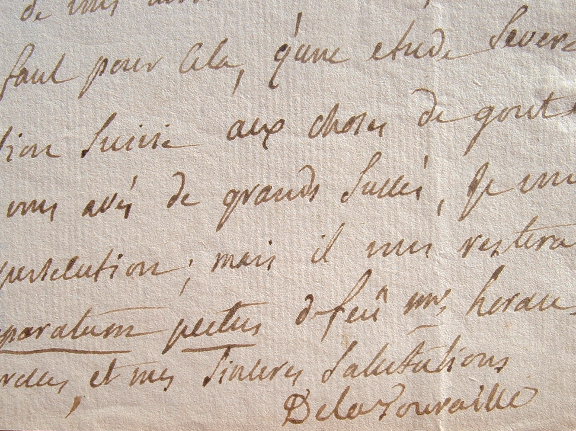 de
faut pour cela, qu'une etude severe
tion suivie aux choses de gout
vous avés de grands succès, je
persecution; mais il vous restera
paratum pectus de feu
et mes sinceres Salutations
Delatouraille